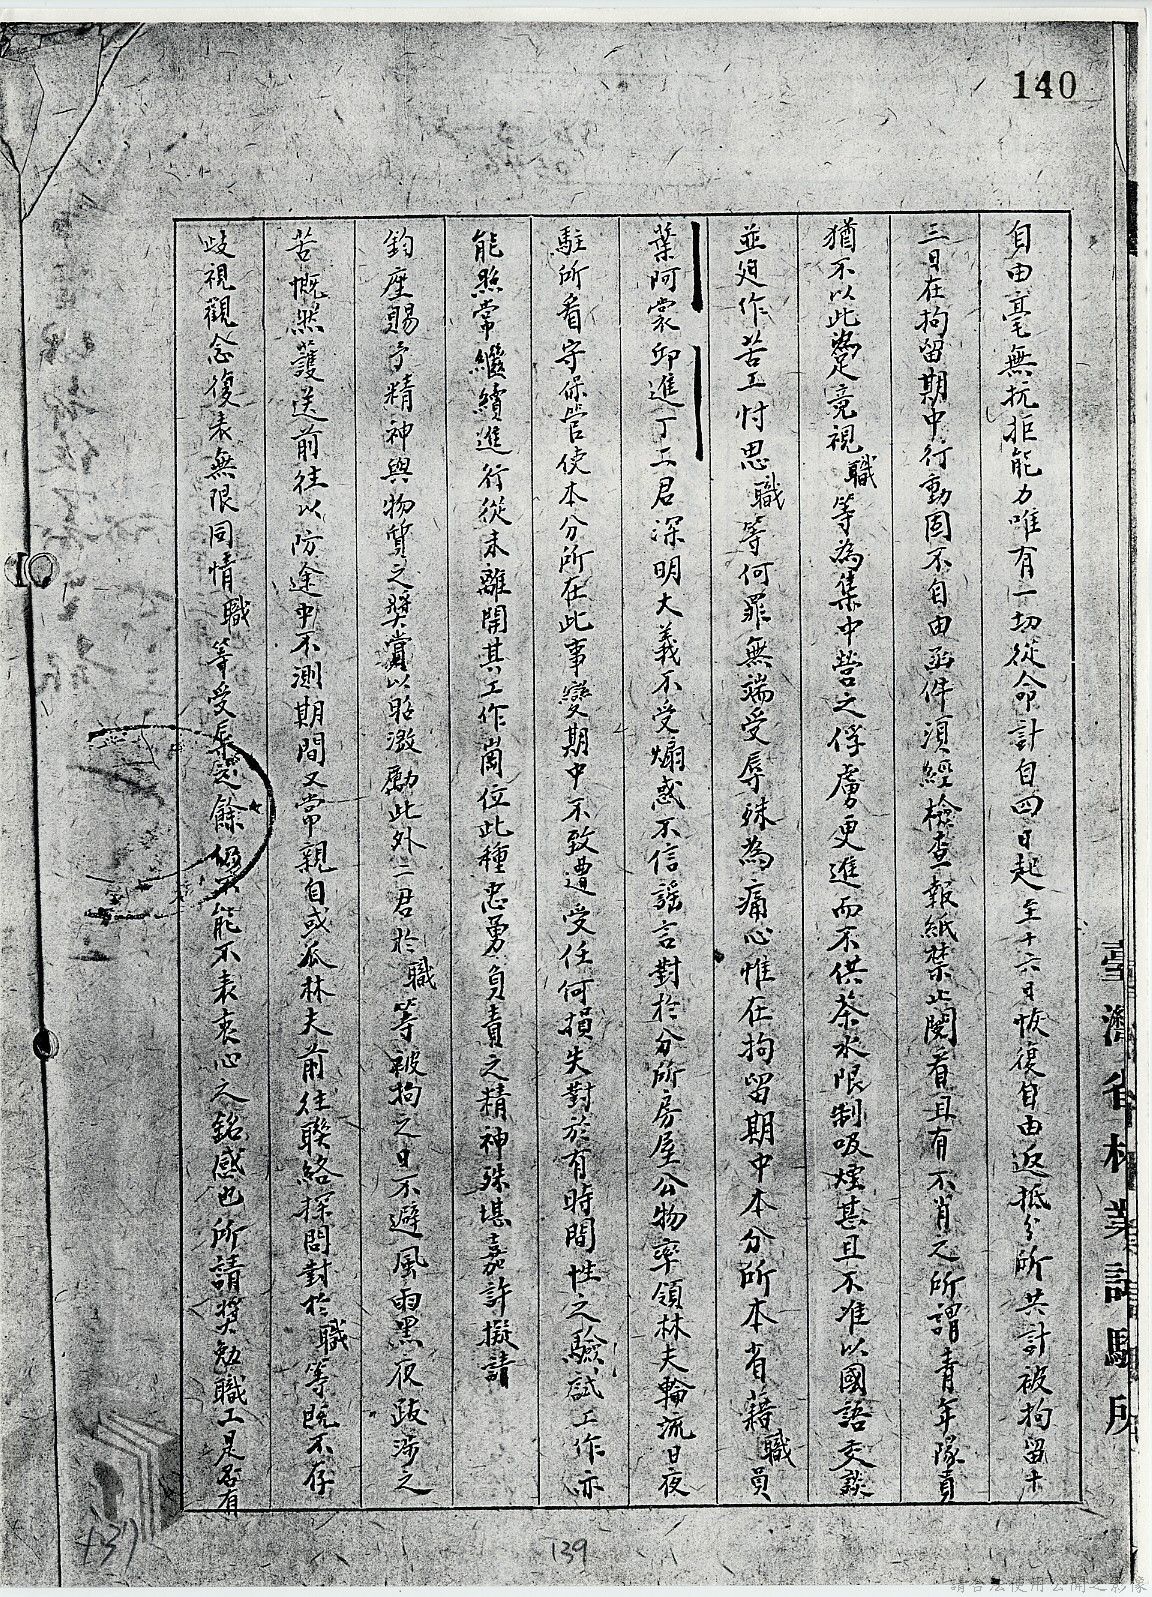 140
自由毫無抗拒能力唯有一切從命計自四日起至十六日恢復自由返抵分所共計被拘留十
三日在拘留期中行動固不自由函件須經檢查報紙禁止閱看且有不肖之所謂青年隊責
猶不以此為足竟視職等為集中營之俘虜更進而不供茶水限制吸煙甚且不准以國語交談
並迫作苦工忖思職等何罪無端受辱殊為痛心惟在拘留期中本分所本省籍職員
葉阿裳邱進丁二君深明大義不受煽惑不信謠言對於分所房屋公物率領林夫輪流日夜
駐所看守保管使本分所在此事變期中不致遭受任何損失對於有時間性之驗試工作亦
能照常繼續進行從未離開其工作崗位此種忠勇負責之精神殊堪嘉許擬請
鈞座賜予精神與物質之獎賞以昭激勵此外二君於職等被拘之日不避風雨黑夜跋涉之
苦慨然護送前往以防途中不測期間又常親自或派林夫前往聯絡探問對於職等既不存
歧視觀念復表無限同情職等受辱之餘仍不能不表衷心之銘感也所請獎勉職工是否有
臺灣省林業試驗所
139
137
請合法使用公開之影像